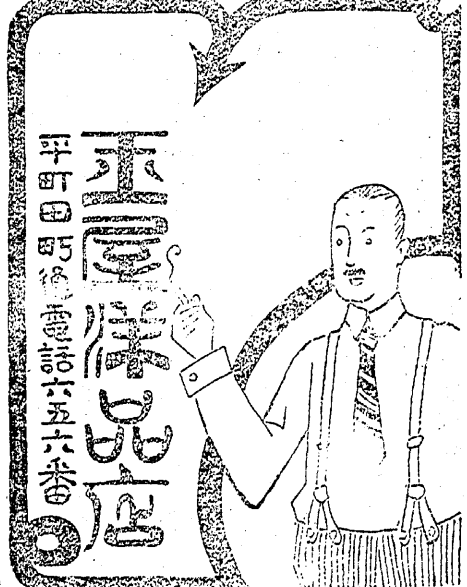 玉屋洋品店
平町田町電話六五六番